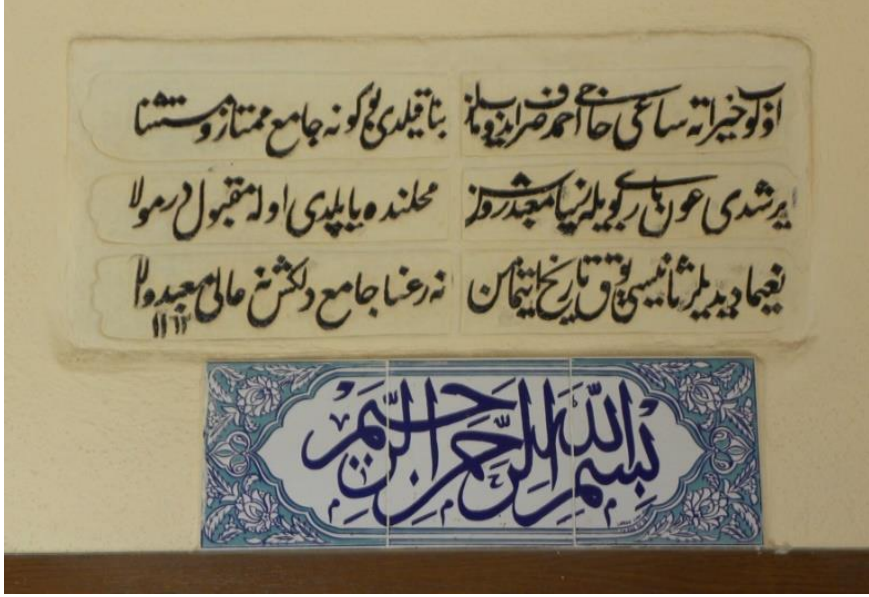 اولوب خیراته ساعی حاجی احمد صرف ایدوب مالن بنا قیلدی بو کونه جامع ممتاز و مستثنا
یرشدی عون باری بویله زیبا معبد محلنده یاپلدی اوله مقبول در مولا
نعیما دیدیلر ثانیسی یوق تاریخ اتمامن نه رعنا جامع دلکش نه عالی معبد والا
١١٦٢
بسم الله الرحمن الرحیم